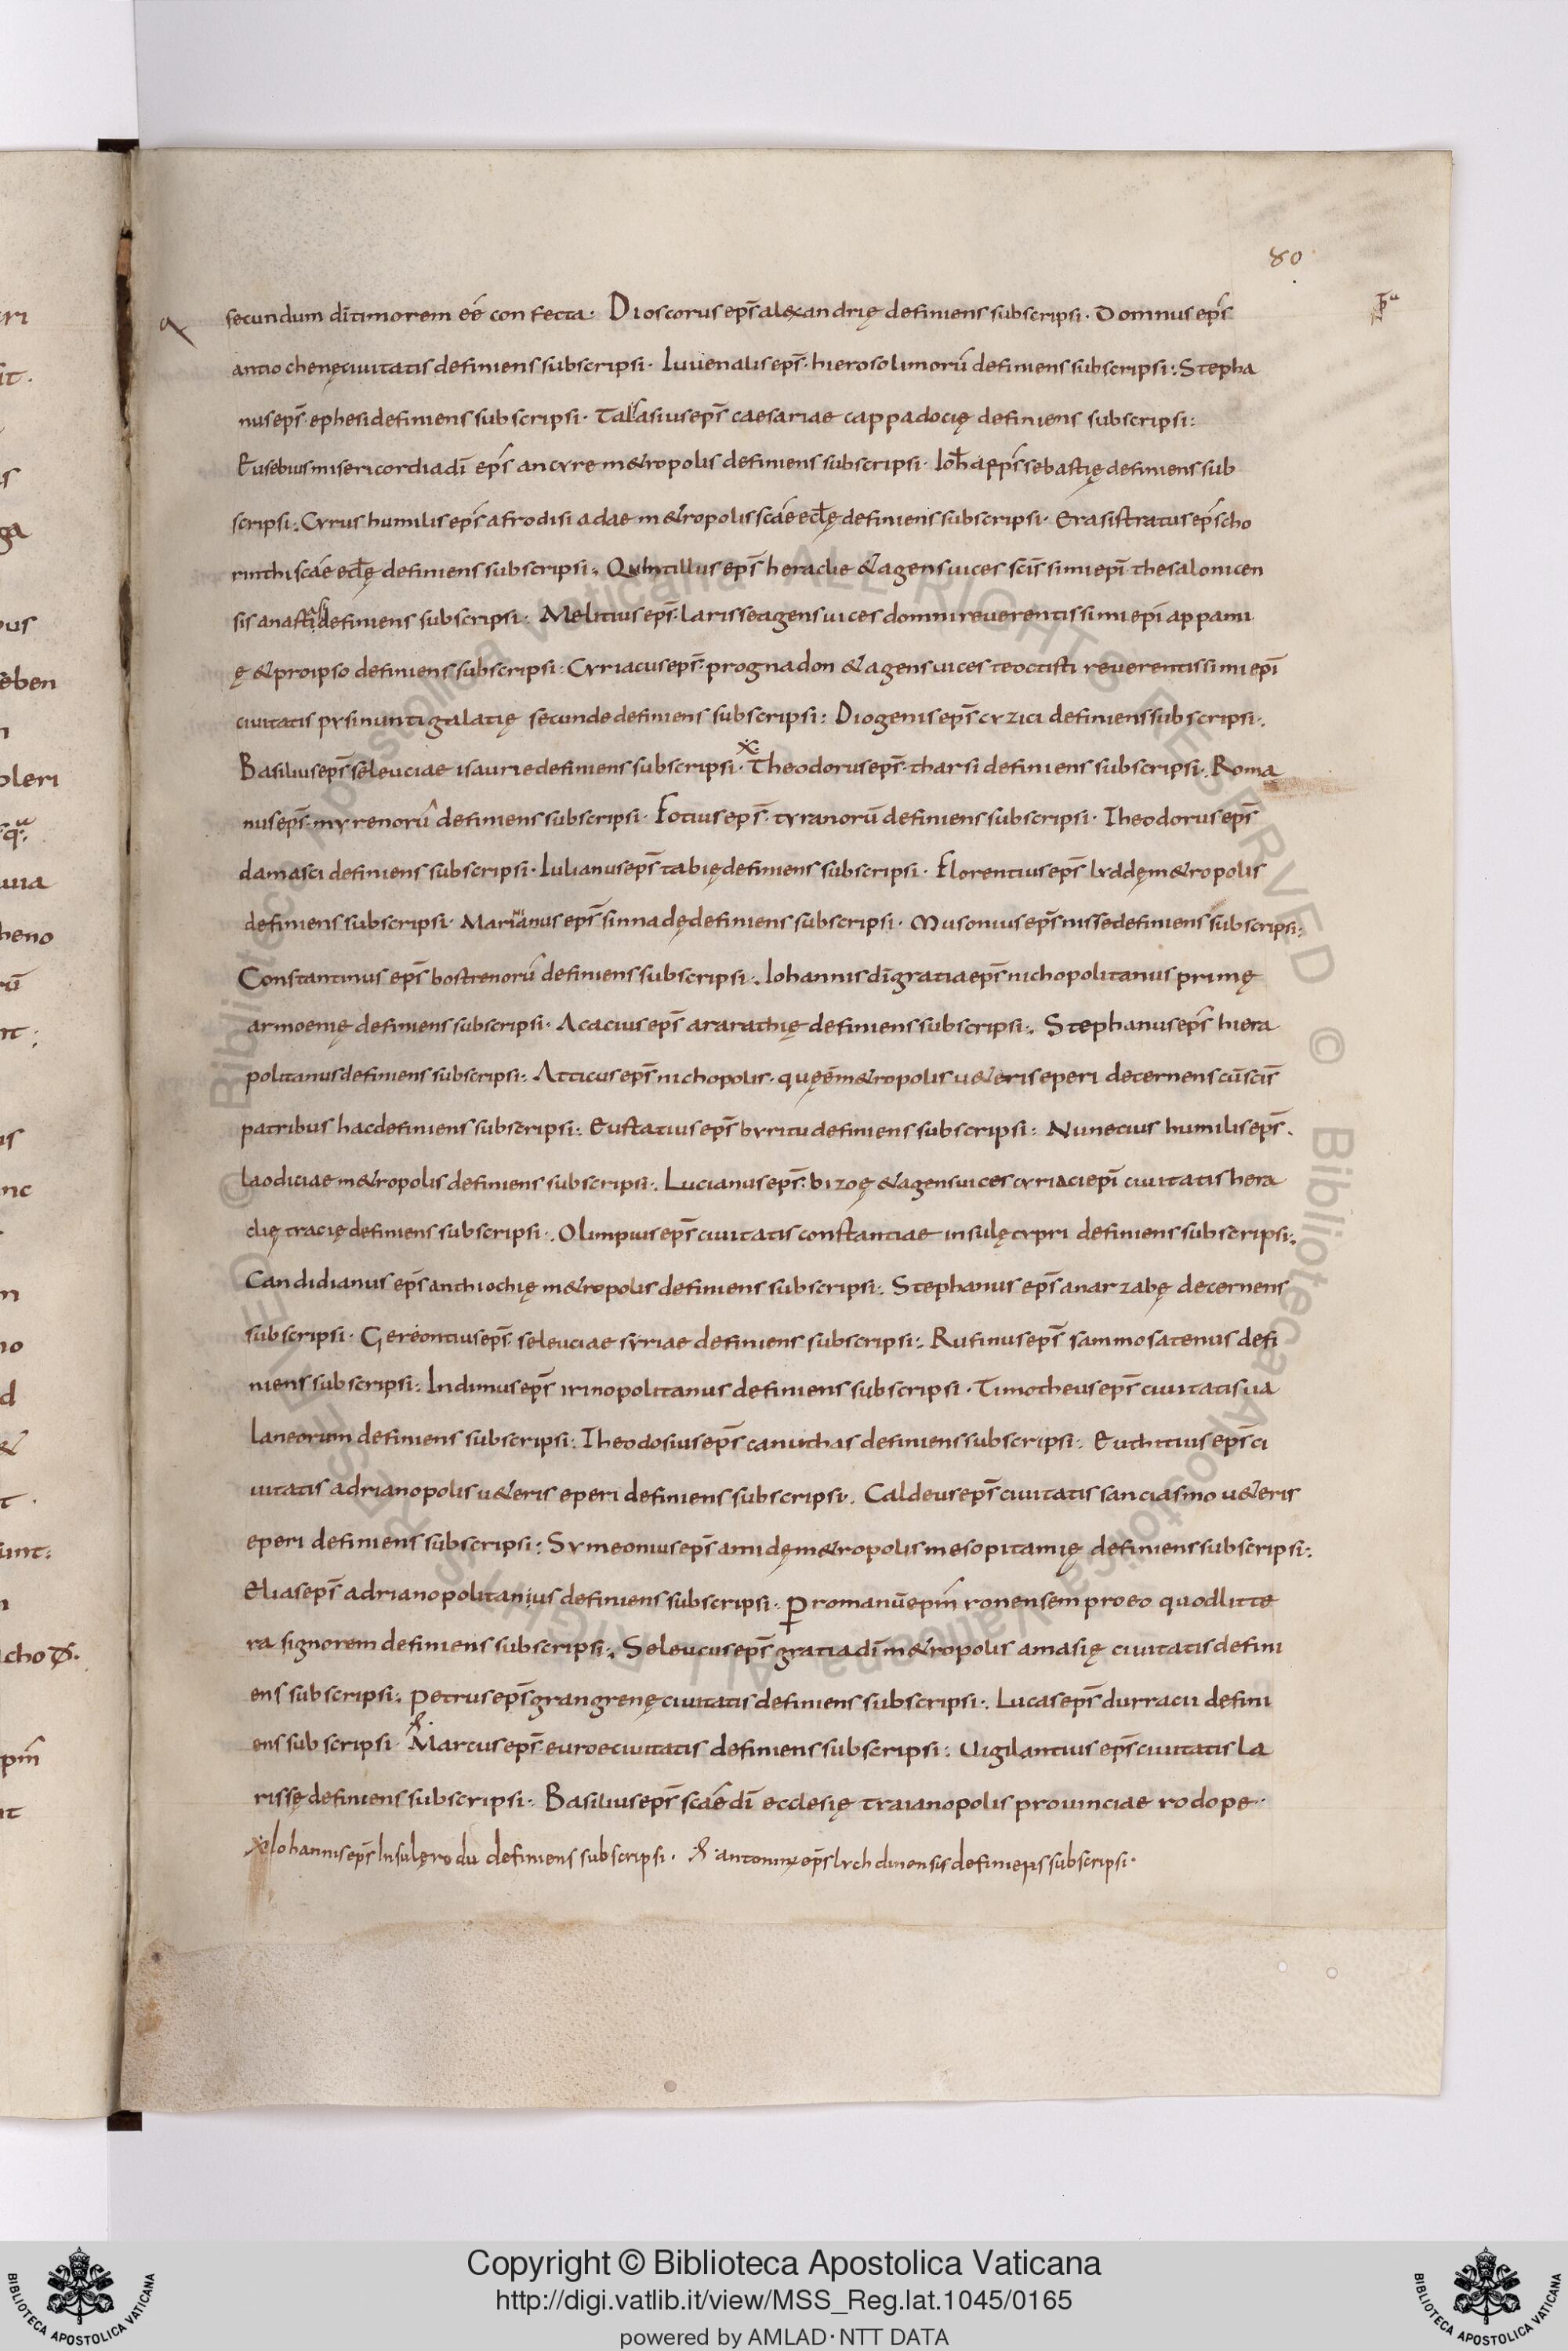 80
secundum dī timorem eē confecta· Dioscorus ep̄s alexandrię definiens subscripsi· Domnus ep̄s
antiochenę ciuitatis definiens subscripsi· Iuuenalis ep̄s· hierosolimorū definiens subscripsi:· Stepha
nus ep̄s ephesi definiens subscripsi· Talasius ep̄s caesariae cappadocię definiens subscripsi:
Eusebius misericordia dī ep̄s ancyre m&ropolis definiens subscripsi· ep̄s sebastię definiens sub
scripsi:· Cyrus humilis ep̄s afrodisiadae m&ropolis scāe eclę definiens subscripsi· Erasistratus ep̄s cho
rinthi scāe eclę definiens subscripsi:· Quintillus ep̄s heraclie & agens uices scīssimi epī thesalonicen
sis definiens subscripsi· Melitius ep̄s· larisse agens uices domni reuerentissimi epī appami
ę & pro ipso definiens subscripsi· Cyriacus ep̄s· prognadon & agens uices teoctisti reuerentissimi epī
ciuitatis pysinunti galatię secunde definiens subscripsi: Diogenis ep̄s cyzici definiens subscripsi·
Basilius ep̄s seleuciae isaurie definiens subscripsi· Theodorus ep̄s· tharsi definiens subscripsi· Roma
nus ep̄s· myrenorū definiens subscripsi· Fotius ep̄s· tyranorū definiens subscripsi· Theodorus ep̄s
damasci definiens subscripsi· Iulianus ep̄s tabię definiens subscripsi· Florentius ep̄s lyddę m&ropolis
definiens subscripsi· Marinianus ep̄s sinnadę definiens subscripsi· Musonius ep̄s nisse definiens subscripsi:
Constantinus ep̄s bostrenorū definiens subscripsi:· Iohannis dī gratia ep̄s nichopolitanus primę
armoenię definiens subscripsi· Acacius ep̄s ararathię definiens subscripsi:· Stephanus ep̄s hiera
politanus definiens subscripsi:· Atticus ep̄s nichopolis· quę ē m&ropolis u&eris eperi decernens cū scīs
patribus hac definiens subscripsi:· Eustatius ep̄s byritu definiens subscripsi: Nunecius humilis ep̄s·
laodiciae m&ropolis definiens subscripsi:· Lucianus ep̄s· bizoę & agens uices cyriaci epī ciuitatis hera
clię tracię definiens subscripsi:· Olimpius ep̄s ciuitatis constantiae insulę cypri definiens subscripsi:·
Candidianus ep̄s anthiochię m&ropolis definiens subscripsi:· Stephanus ep̄s anarzabę decernens
subscripsi· Gereontius ep̄s· seleuciae syriae definiens subscripsi:· Rufinus ep̄s sammosatenus defi
niens subscripsi:· Indimus ep̄s irinopolitanus definiens subscripsi· Timotheus ep̄s ciuitatis ua
laneorum definiens subscripsi:· Theodosius ep̄s canuthas definiens subscripsi:· Euthitius ep̄s ci
uitatis adrianopolis u&eris eperi definiens subscripsi· Caldeus ep̄s ciuitatis sanciasmo u&eris
eperi definiens subscripsi:· Symeonius ep̄s amidę m&ropolis mesopitamię definiens subscripsi:·
Elias ep̄s adrianopolitanius definiens subscripsi· Ꝑ romanū epm̄ ronensem pro eo quod litte
ra signorem definiens subscripsi:· Seleucus ep̄s gratia dī m&ropolis amasię ciuitatis defini
ens subscripsi:· Petrus ep̄s grangrenę ciuitatis definiens subscripsi:· Lucas ep̄s durracii defini
ens subscripsi· Marcus ep̄s euroe ciuitatis definiens subscripsi: Uigilantius ep̄s ciuitatis la
rissę definiens subscripsi· Basilius ep̄s scāe dī ecclesię traianopolis prouinciae rodope·
Iohannis ep̄s Insulę rodu definiens subscripsi· ep̄s lychdinensis definiens subscripsi·
Copyright © Biblioteca Apostolica Vaticana
http://digi.vatlib.it/view/MSS_Reg.lat.1045/0165
powered by AMLAD·NTT DATA